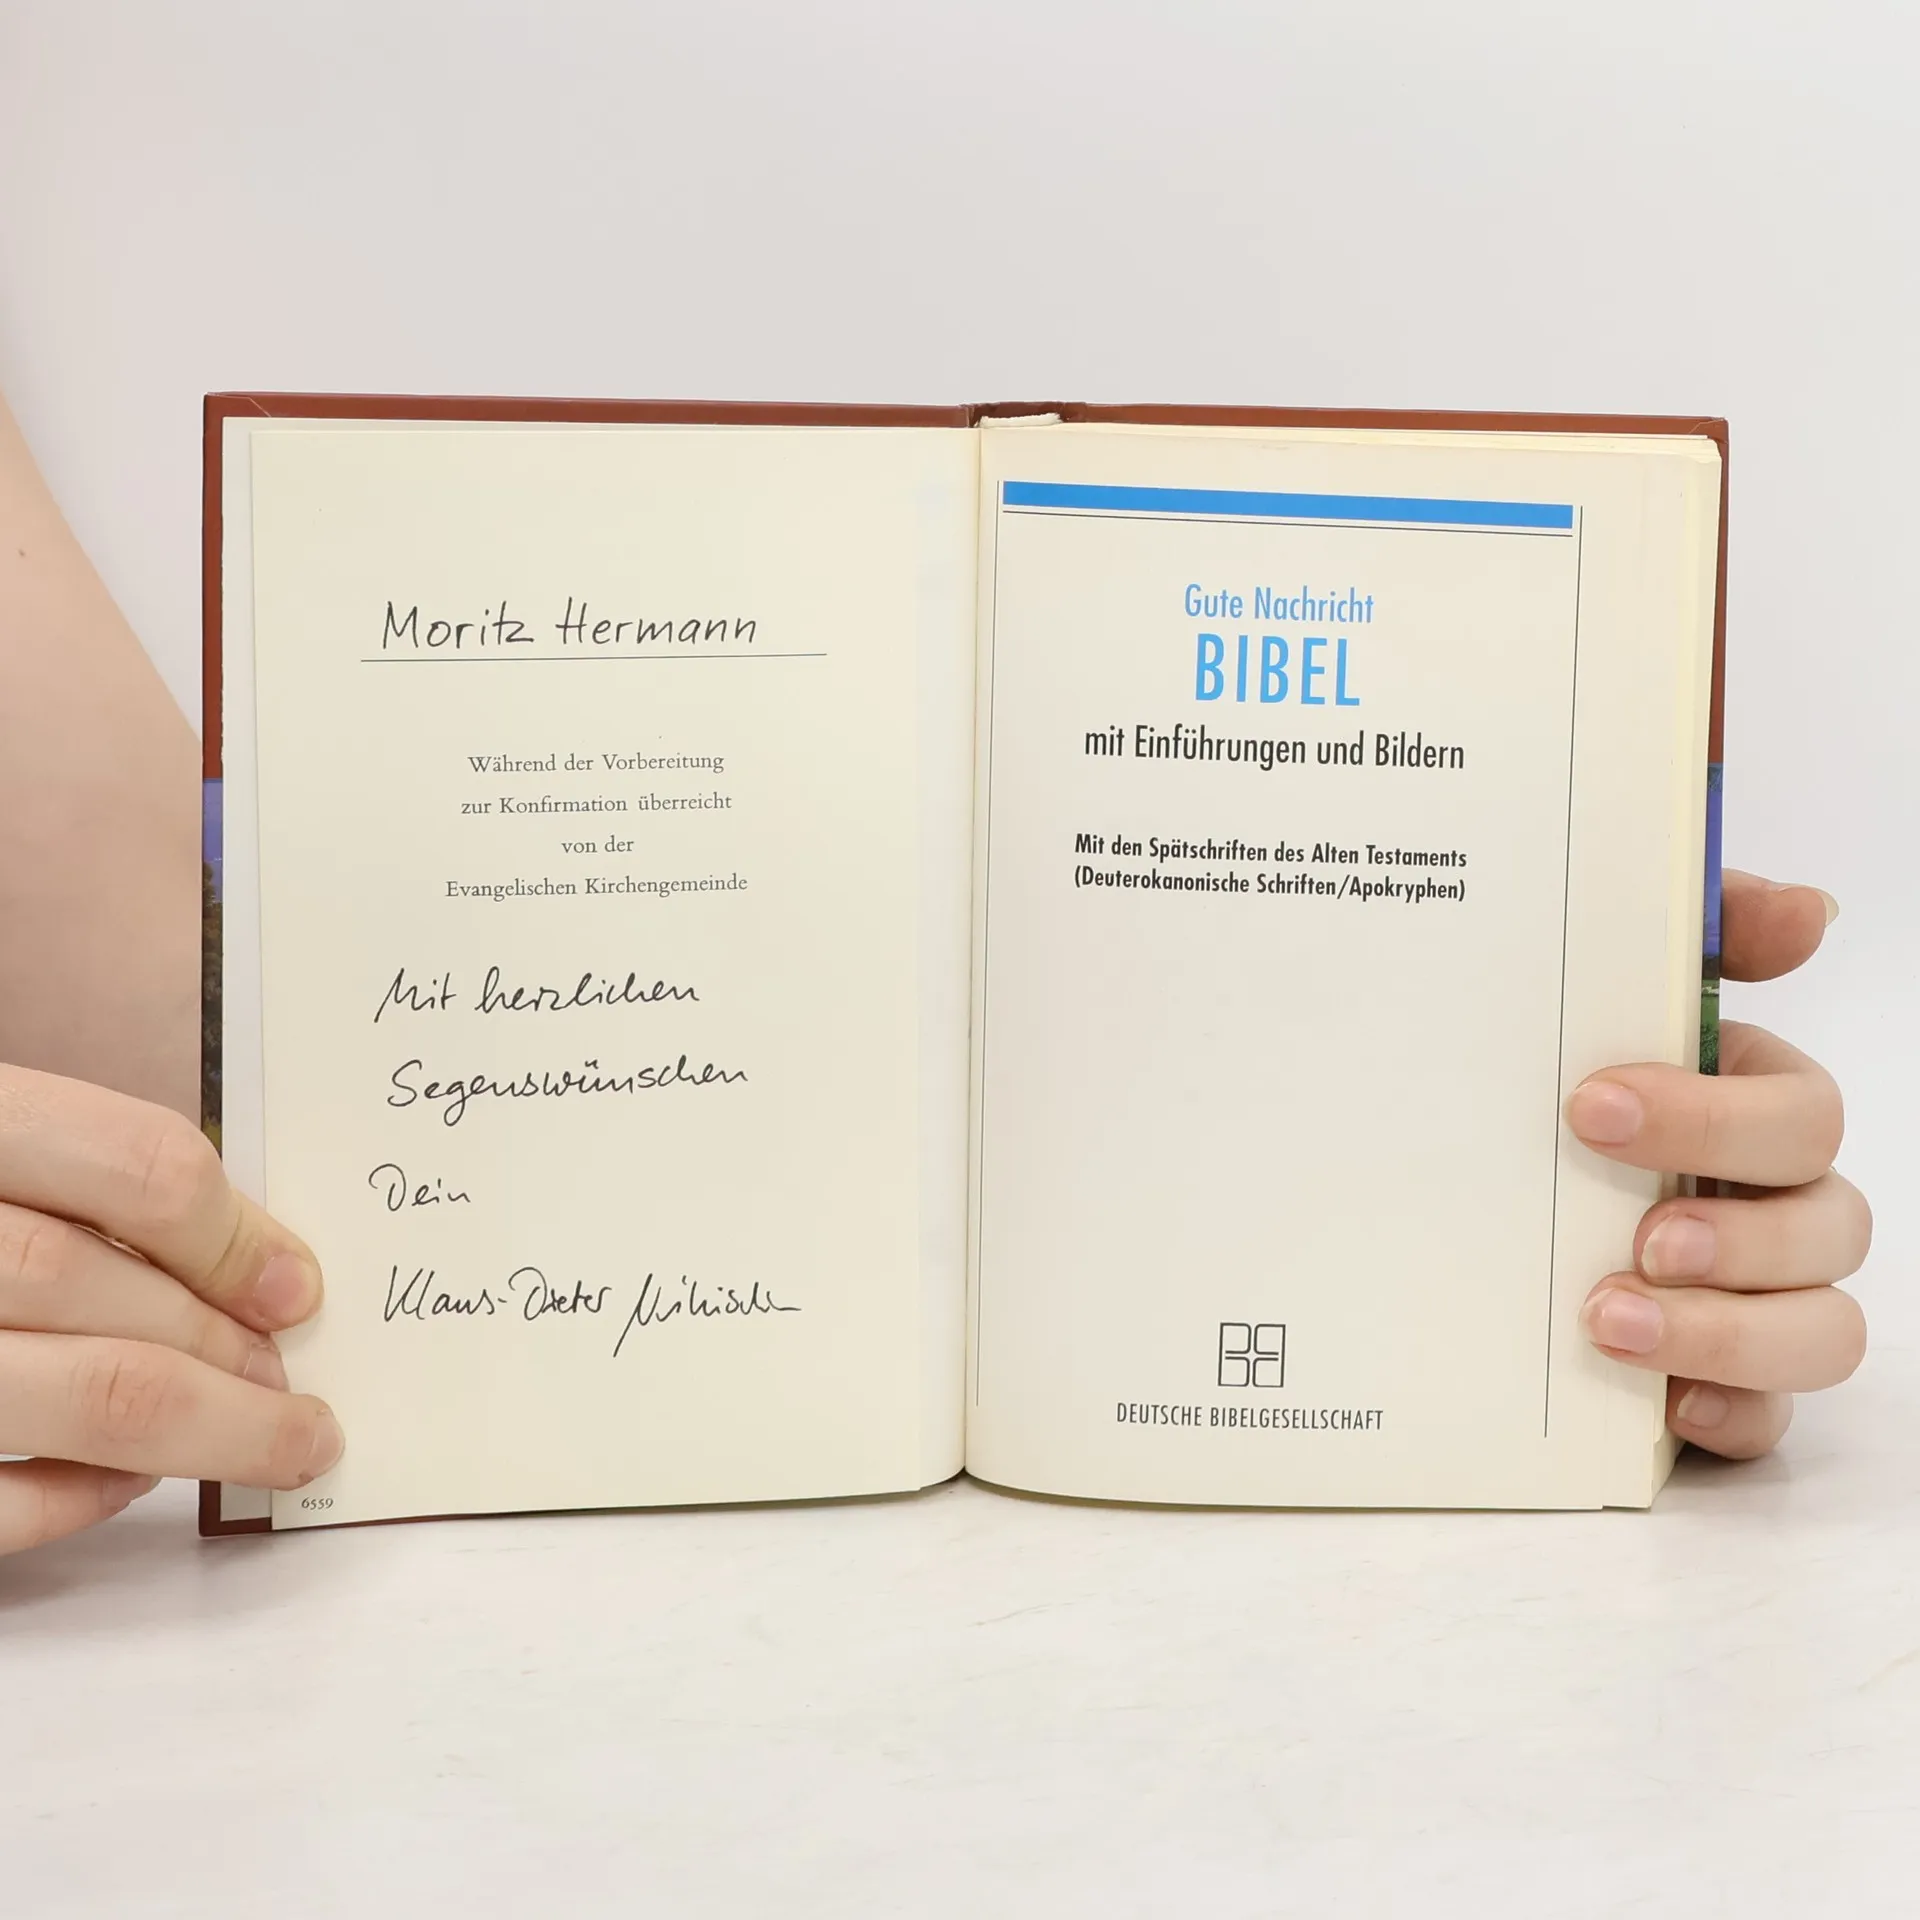 Moritz Hermann
Während der Vorbereitung
zur Konfirmation überreicht
von der
Evangelischen Kirchengemeinde
Mit herzlichen
Segenswünschen
Dein
Klaus-Dieter
6559
Gute Nachricht
BIBEL
mit Einführungen und Bildern
Mit den Spätschriften des Alten Testaments
(Deuterokanonische Schriften/Apokryphen)
DEUTSCHE BIBELGESELLSCHAFT